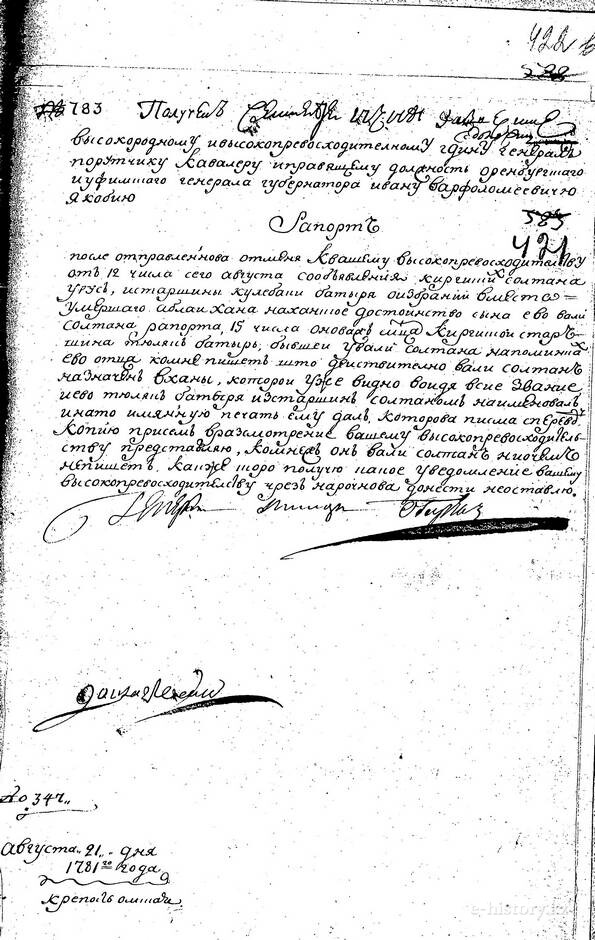 422
783 Полученъ
высокородному ивысокопревосходителному гдину генералъ
порутчику кавалеру иправящему должность оренбургшаго
иуфимшаго генерала губернатора ивану варфоломеевичю
якобию
585
421
Рапортъ
после отправленнова отменя квашему высокопревосходителству
отъ 12 числа сего августа сообъявления киргишх солтана
урусъ, истаршины кулебаки батыря оизбрании вместа=
умершаго аблаи хана наханное достоинство сына ево вали
солтана рапорта, 15 числа оноважъ мца киргишшой стар-
шина тюляпъ батырь, бывшеи ували солтана напоминка
ево отца комне пишетъ што действително вали солтанъ
назначенъ вханы, которои уже видно воидя всие звание
иево тюляпъ батыря изстаршинъ солтаномъ наименовалъ
инато имянную печать ему далъ, которова писма сперевод
копию присемъ вразмотрение вашему высокопревосходитель-
ству представляю, комнежъ онъ вали солтанъ ниочемъ
непишетъ. какже шоро получю какое уведомление вашему
высокопревосходителству чрезъ нарочнова донести неоставлю.
№ 347
августа 21 дня
1781 го года
крепость омшая
e-history.kz